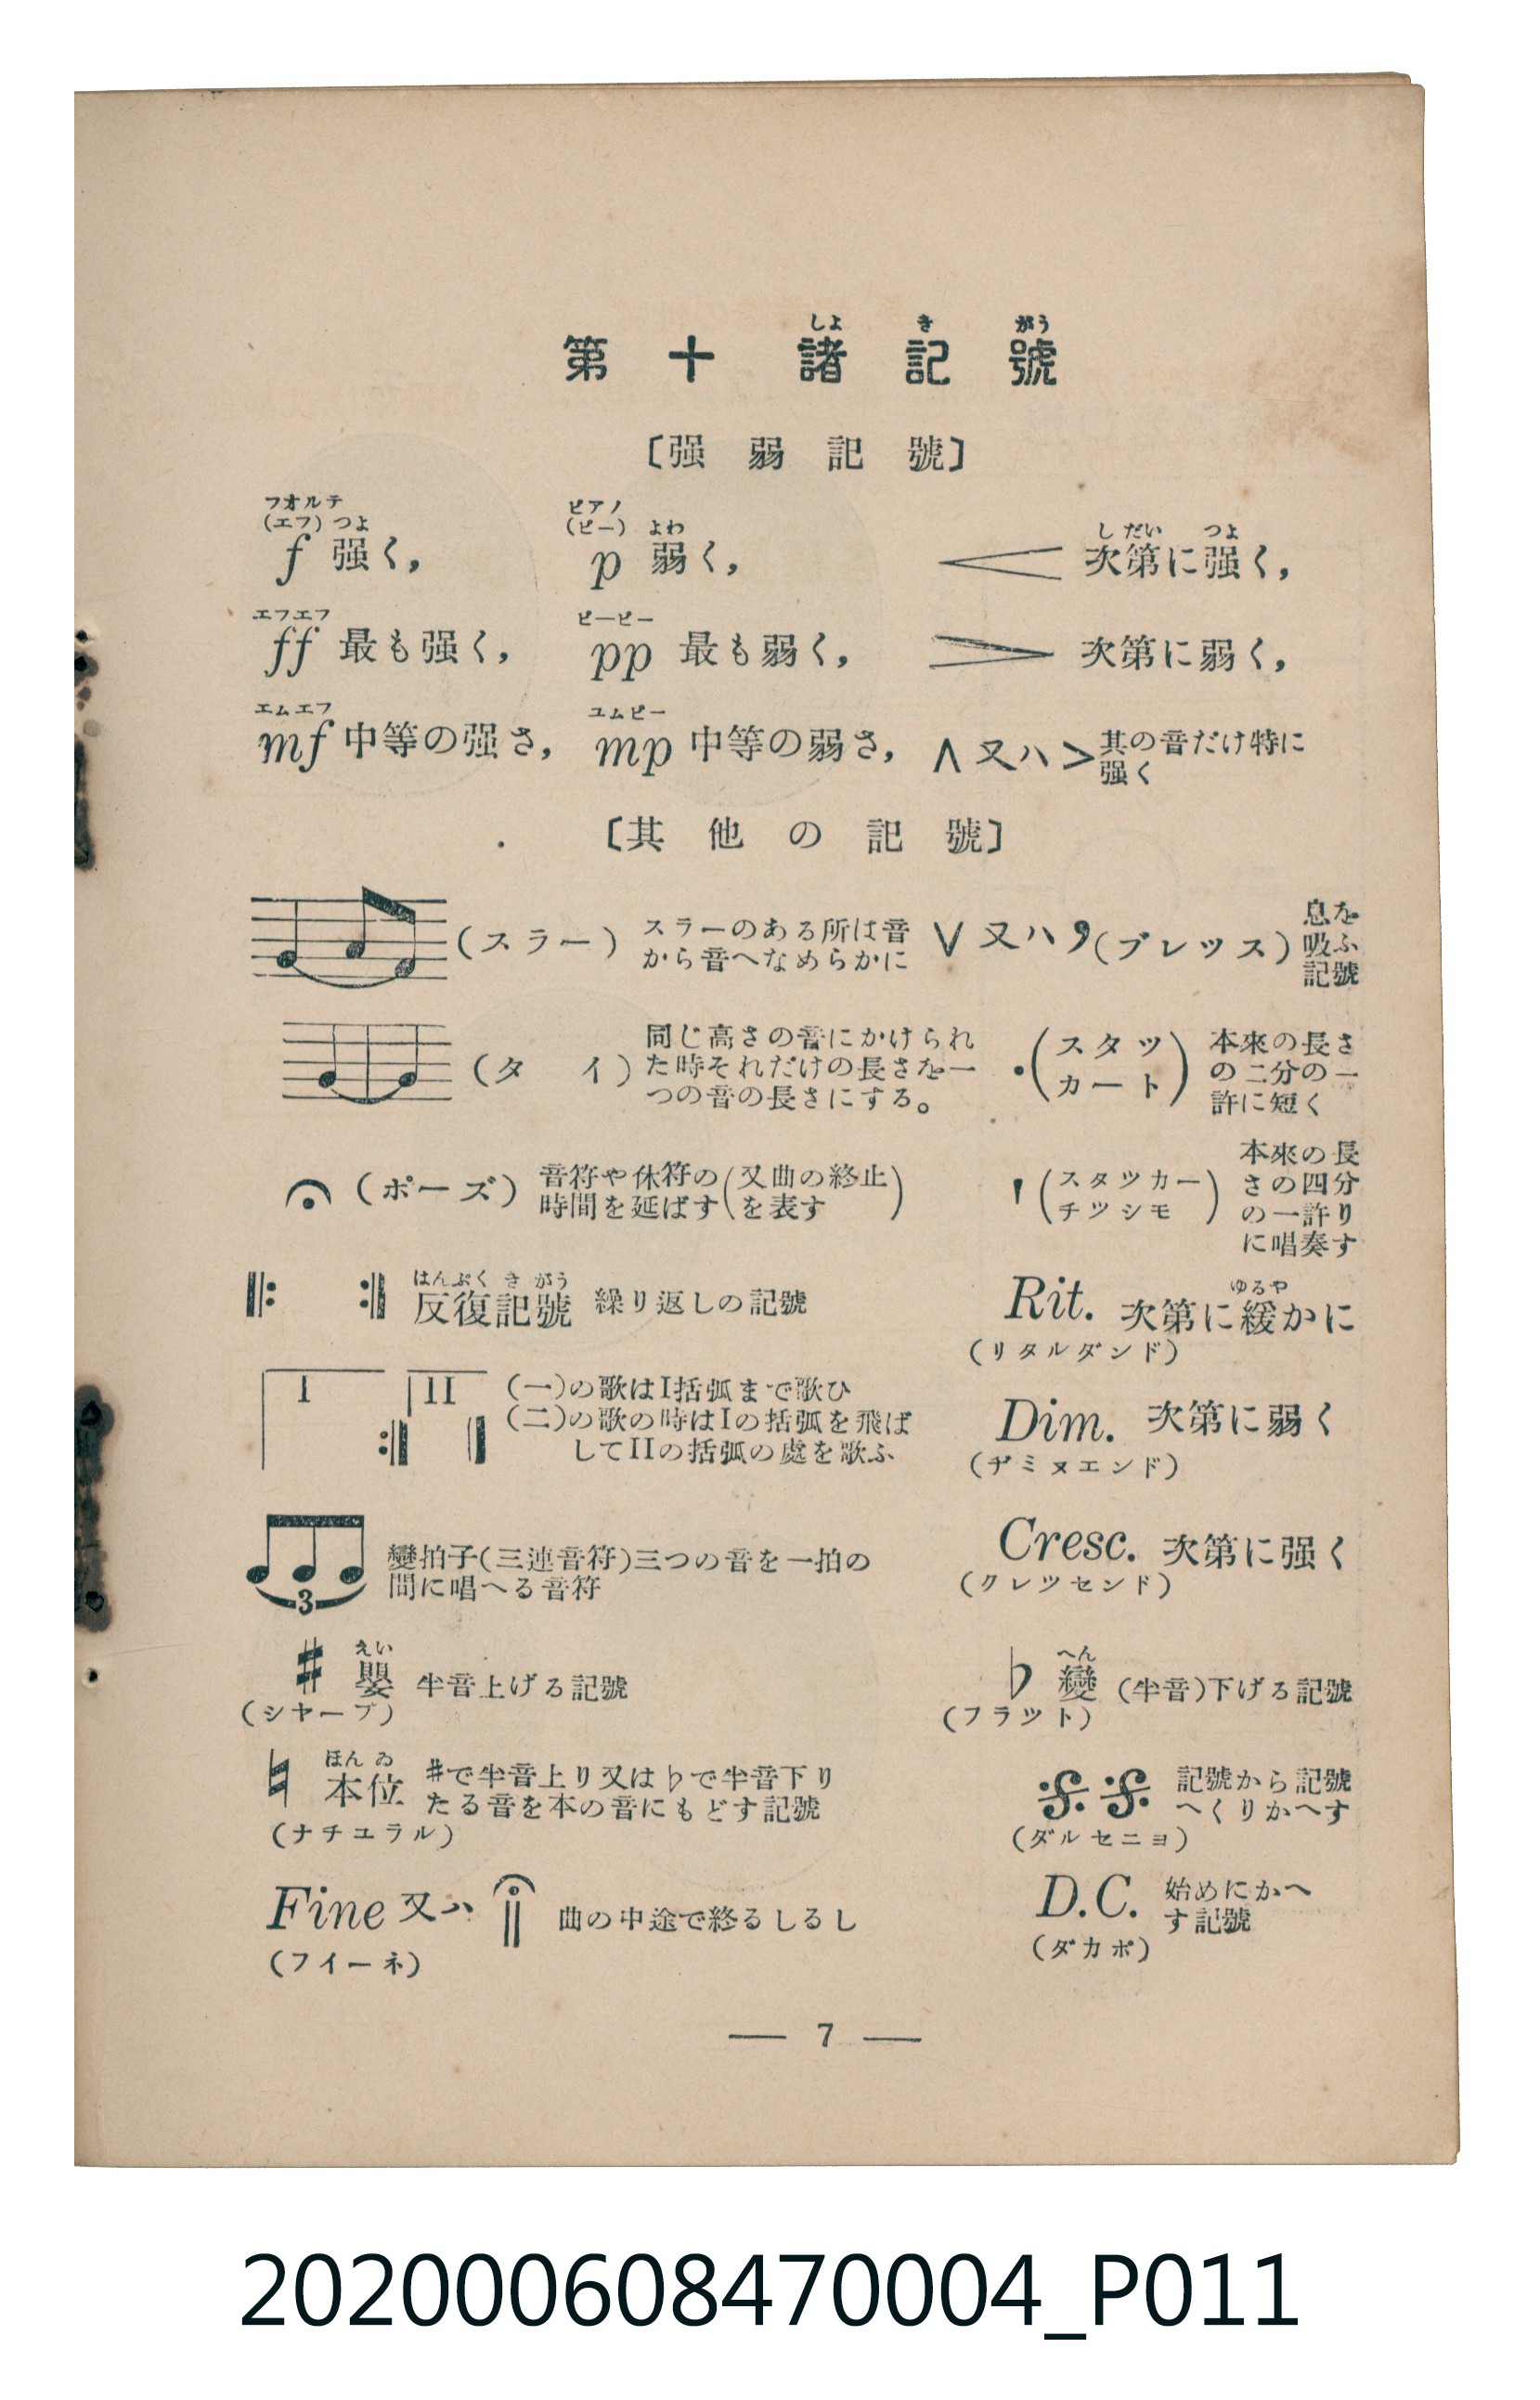 第十諸記號
しよ き がう
〔强弱記號〕
フオルテ
(エフ) つよ
f 强く，
ピアノ
(ピー) よわ
p 弱く，
し だい つよ
次第に强く，
エフエフ
ff 最も强く，
ピーピー
pp 最も弱く，
次第に弱く，
エムエフ
mf 中等の强さ，
ユムピー
mp 中等の弱さ，
∧ 又ハ ＞ 其の音だけ特に
强く
〔其他の記號〕
(スラー) スラーのある所は音
から音へなめらかに
∨ 又ハ ， (ブレツス) 息を
吸ふ
記號
(タイ) 同じ高さの音にかけられ
た時それだけの長さを一
つの音の長さにする。
・(スタツ
カート) 本來の長さ
の二分の一
許に短く
(ポーズ) 音符や休符の (又曲の終止
時間を延ばす を表す)
(スタツカー
チツシモ) 本來の長
さの四分
の一許り
に唱奏す
はんぷく き がう
反復記號 繰り返しの記號
ゆるや
Rit. 次第に緩かに
(リタルダンド)
I II (一)の歌はI括弧まで歌ひ
(二)の歌の時はIの括弧を飛ば
してIIの括弧の處を歌ふ
Dim. 次第に弱く
(ヂミヌエンド)
3 變拍子(三連音符)三つの音を一拍の
間に唱へる音符
Cresc. 次第に强く
(クレツセンド)
えい
♯ 嬰 半音上げる記號
(シヤープ)
へん
♭ 變 (半音)下げる記號
(フラツト)
ほん ゐ
♮ 本位 ♯で半音上り又は♭で半音下り
たる音を本の音にもどす記號
(ナチユラル)
記號から記號
へくりかへす
(ダルセニヨ)
Fine 又ハ 曲の中途で終るしるし
(フイーネ)
D.C. 始めにかへ
す記號
(ダカポ)
— 7 —
202000608470004_P011